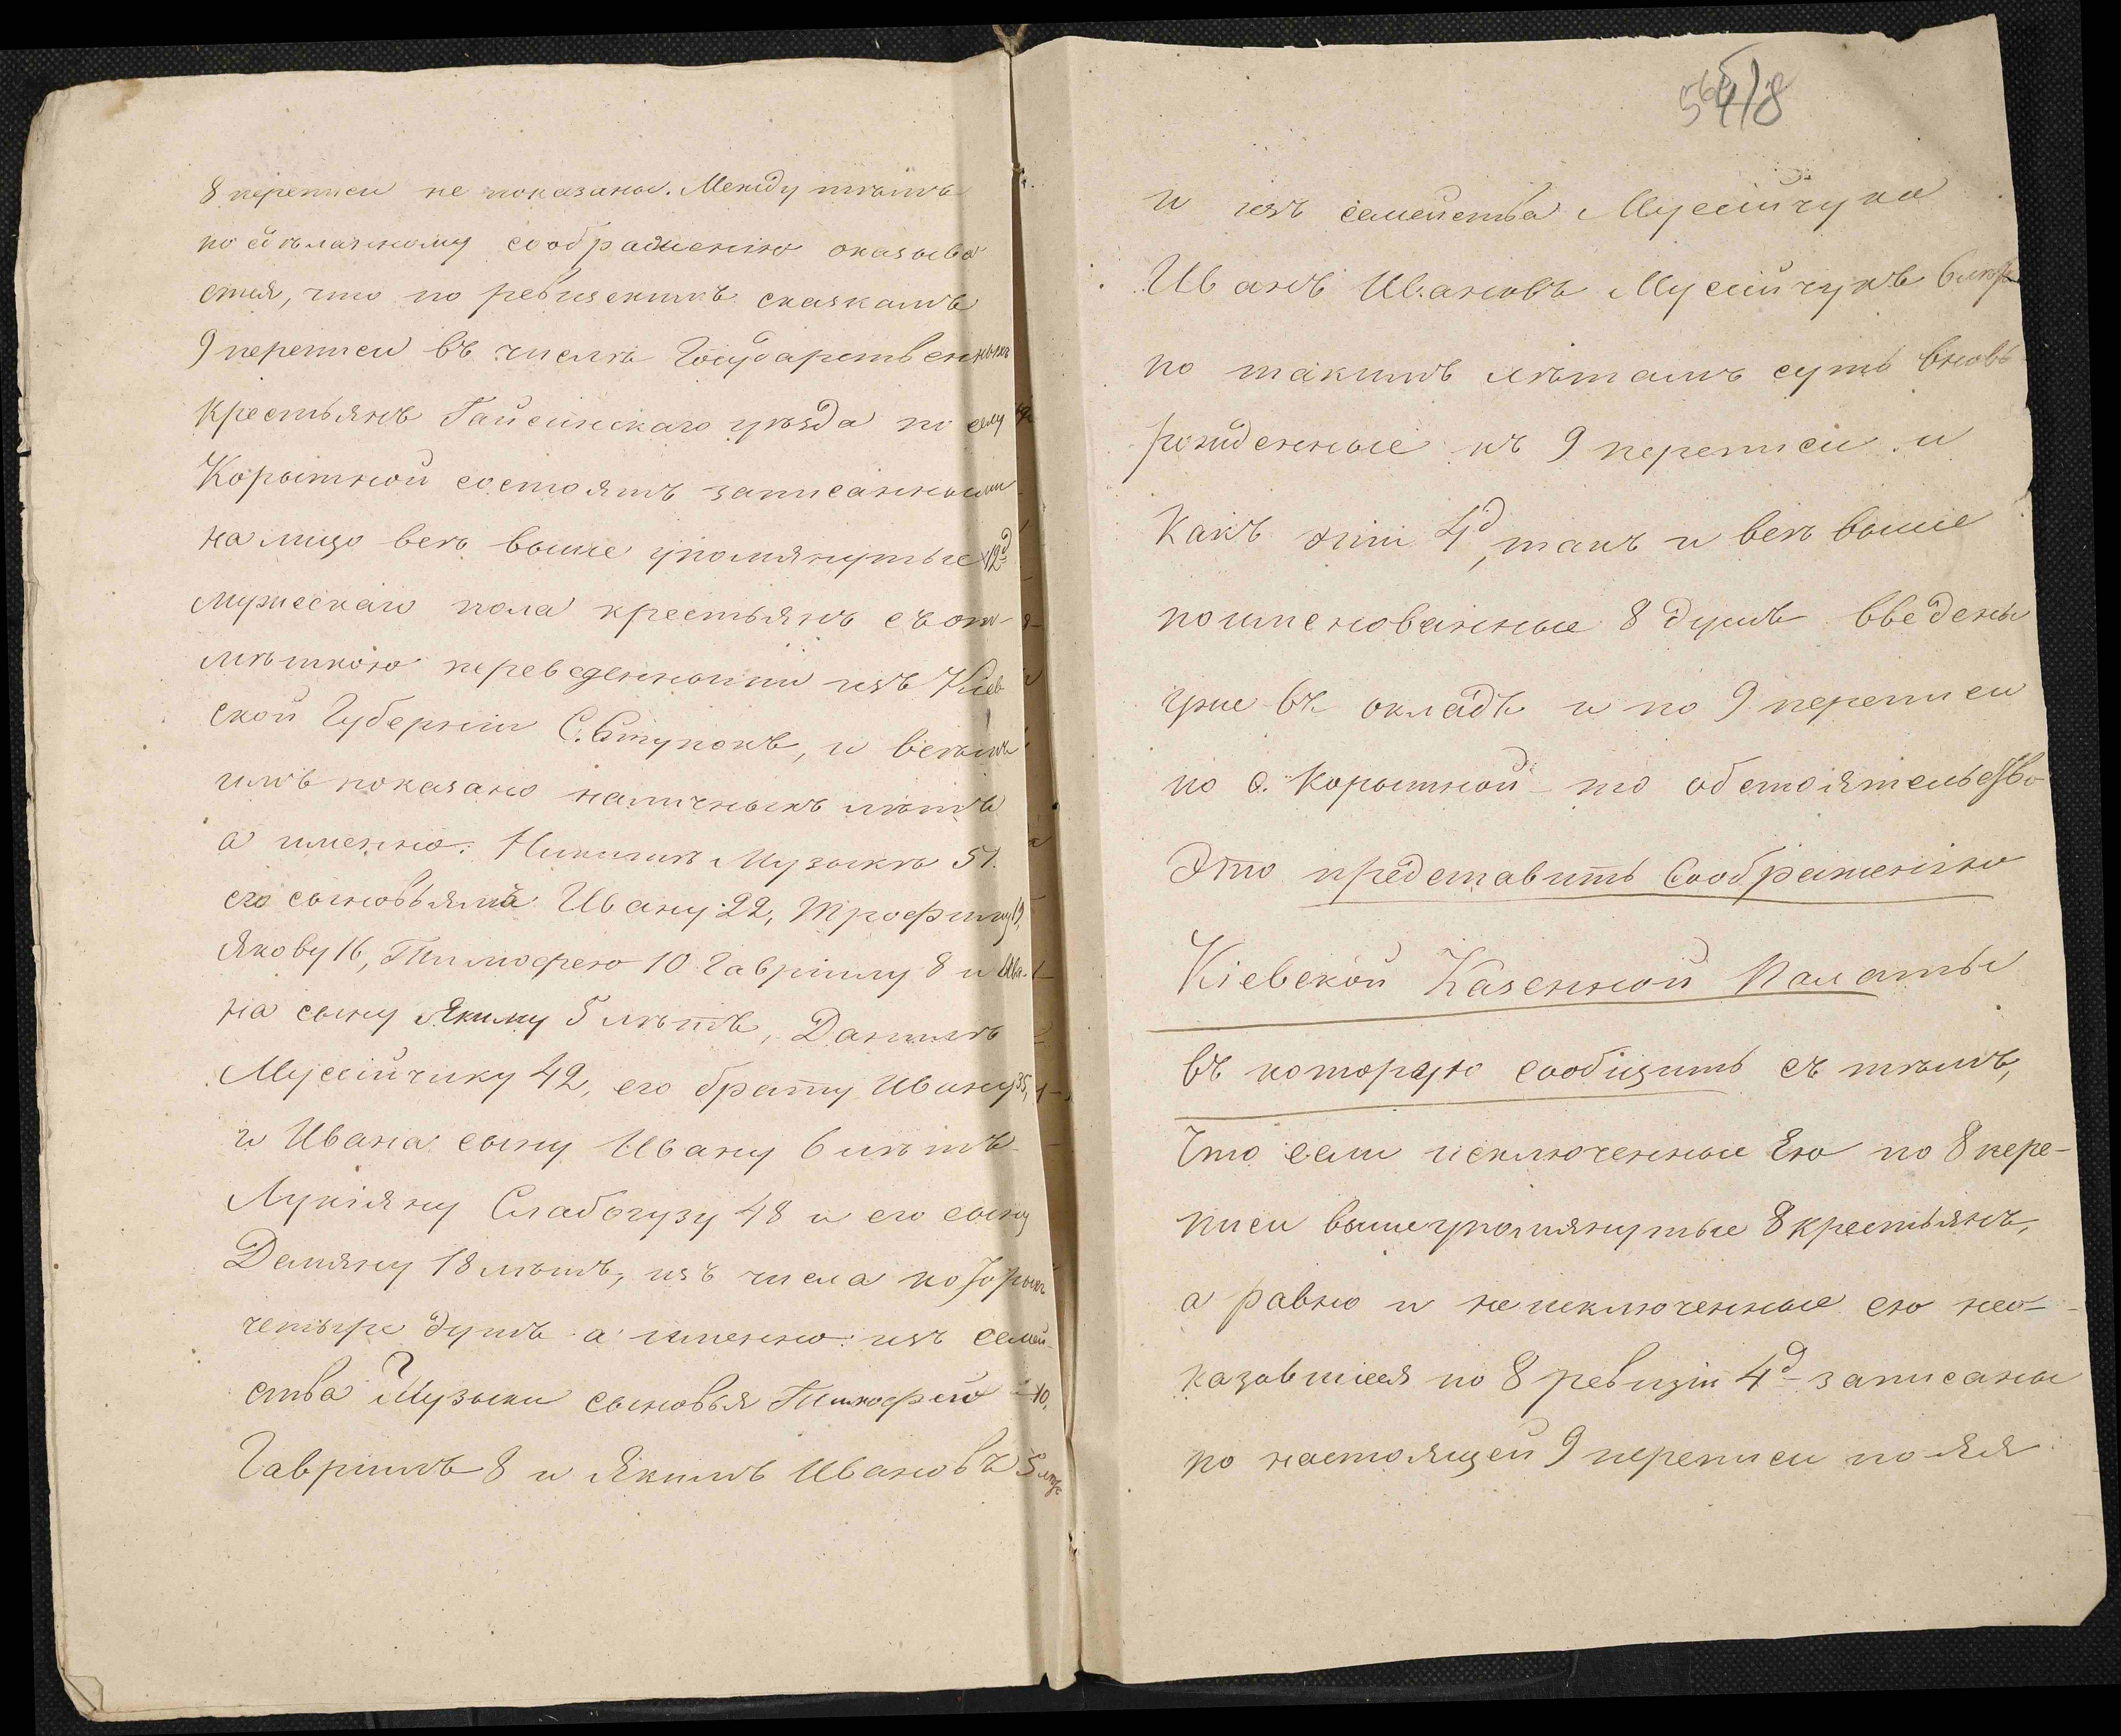 8 переписи не показаны. Между тѣмъ
по сдѣланному соображенію оказыва
ется, что по ревизскимъ сказкамъ
9 переписи въ числѣ Государственныхъ
Крестьянъ Гайсинскаго уѣзда по селу
Корытной состоятъ записанными
на лицо всѣ выше упомянутые 12д
мужескаго пола крестьянъ съ от-
мѣткою переведенными изъ Кіев
ской Губерніи С. Ступокъ, и всѣмъ
имъ показано наличныхъ лѣтъ
а именно: Никитѣ Музыкѣ 51.
его сыновьямъ Ивану 22, Трофиму 19,
Якову 16, Тимофею 10 Гавріилу 8 и Ива-
на сыну Якиму 5 лѣтъ, Данилѣ
Мусійчику 42, его брату Ивану 35,
и Ивана сыну Ивану 6 лѣтъ
Лукіяну Слабогузу 48 и его сыну
Демяну 18 лѣтъ, изъ числа которыхъ
четыре душъ а именно: изъ семей-
ства Музыки сыновья Тимофей 10,
Гавріилъ 8 и Якимъ Ивановъ 5 лѣтъ
564/8
и изъ семейства Мусійчука
Иванъ Ивановъ Мусійчукъ 6 лѣтъ
по такимъ лѣтамъ суть вновь
рожденные къ 9 переписи и
Какъ эти 4д, такъ и всѣ выше
поименованные 8 душъ введены
уже въ окладъ и по 9 переписи
по с. Корытной – то обстоятельство
Это представить Соображенію
Кіевской Казенной Палаты
въ которую сообщить съ тѣмъ,
Что если исключенные Ею по 8 пере-
писи вышеупомянутые 8 крестьянъ,
а равно и не исключенные ею нео-
казавшіеся по 8 ревизіи 4д – записаны
по настоящей 9 переписи по